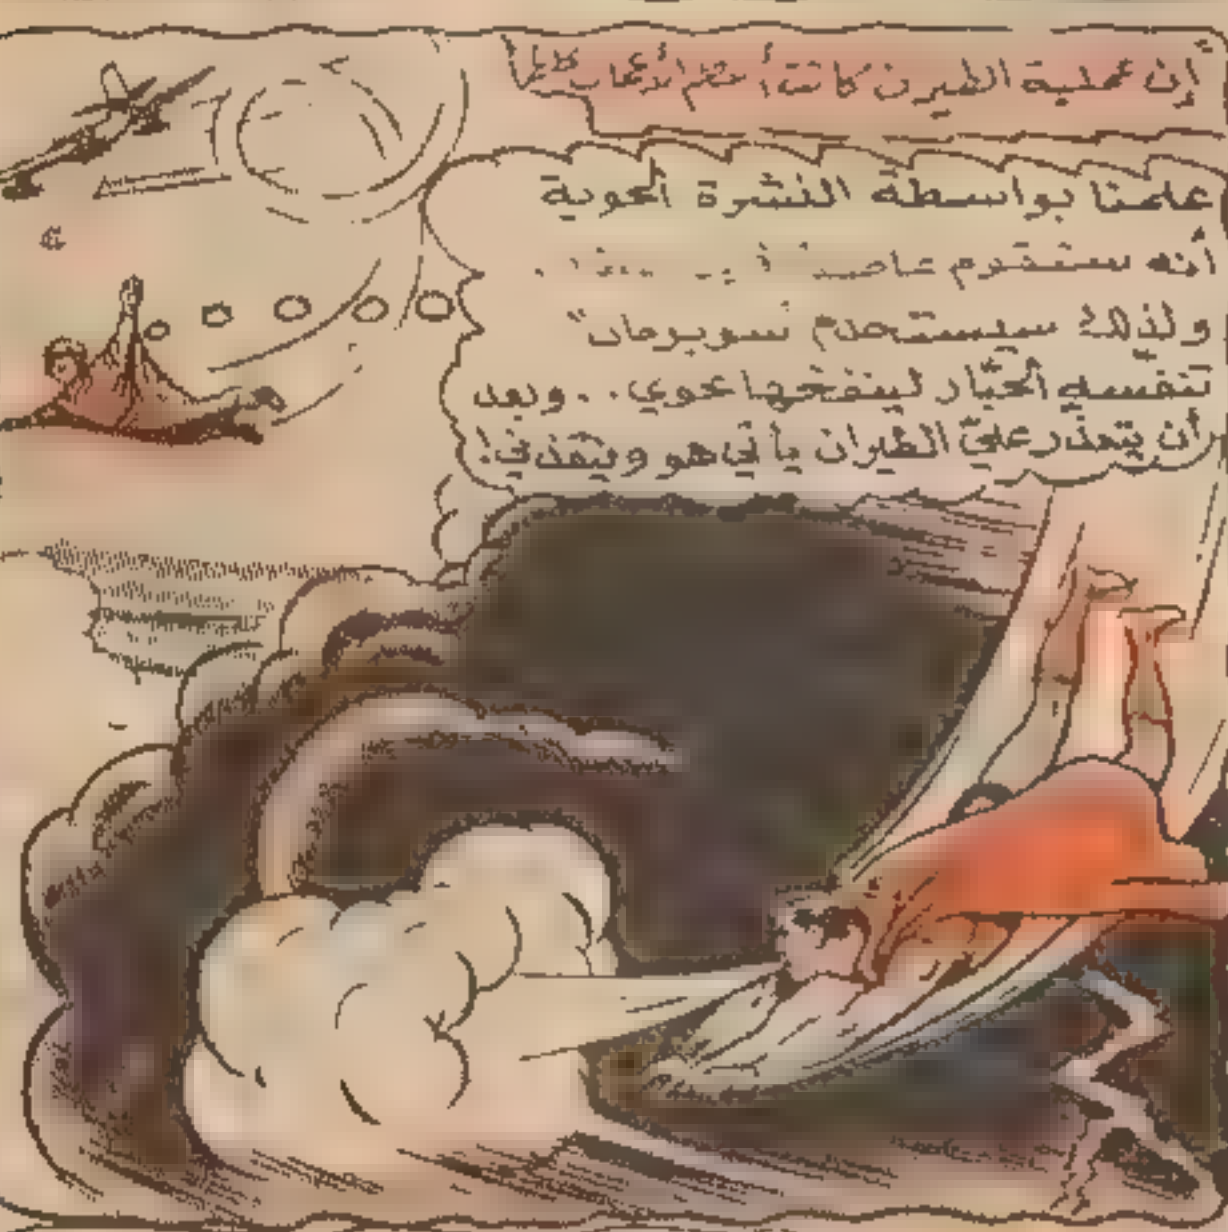 إن عملية الطيران كانت أعظم الألعاب كلها
علمنا بواسطة النشرة الجوية
أنه ستقدم عاصفة
ولذلك سيستخدم "سوبرمان"
تنفسه الجبّار لينفخها نحوي . . وبعد
أن يتعذر عليّ الطيران يأتي هو وينقذني!